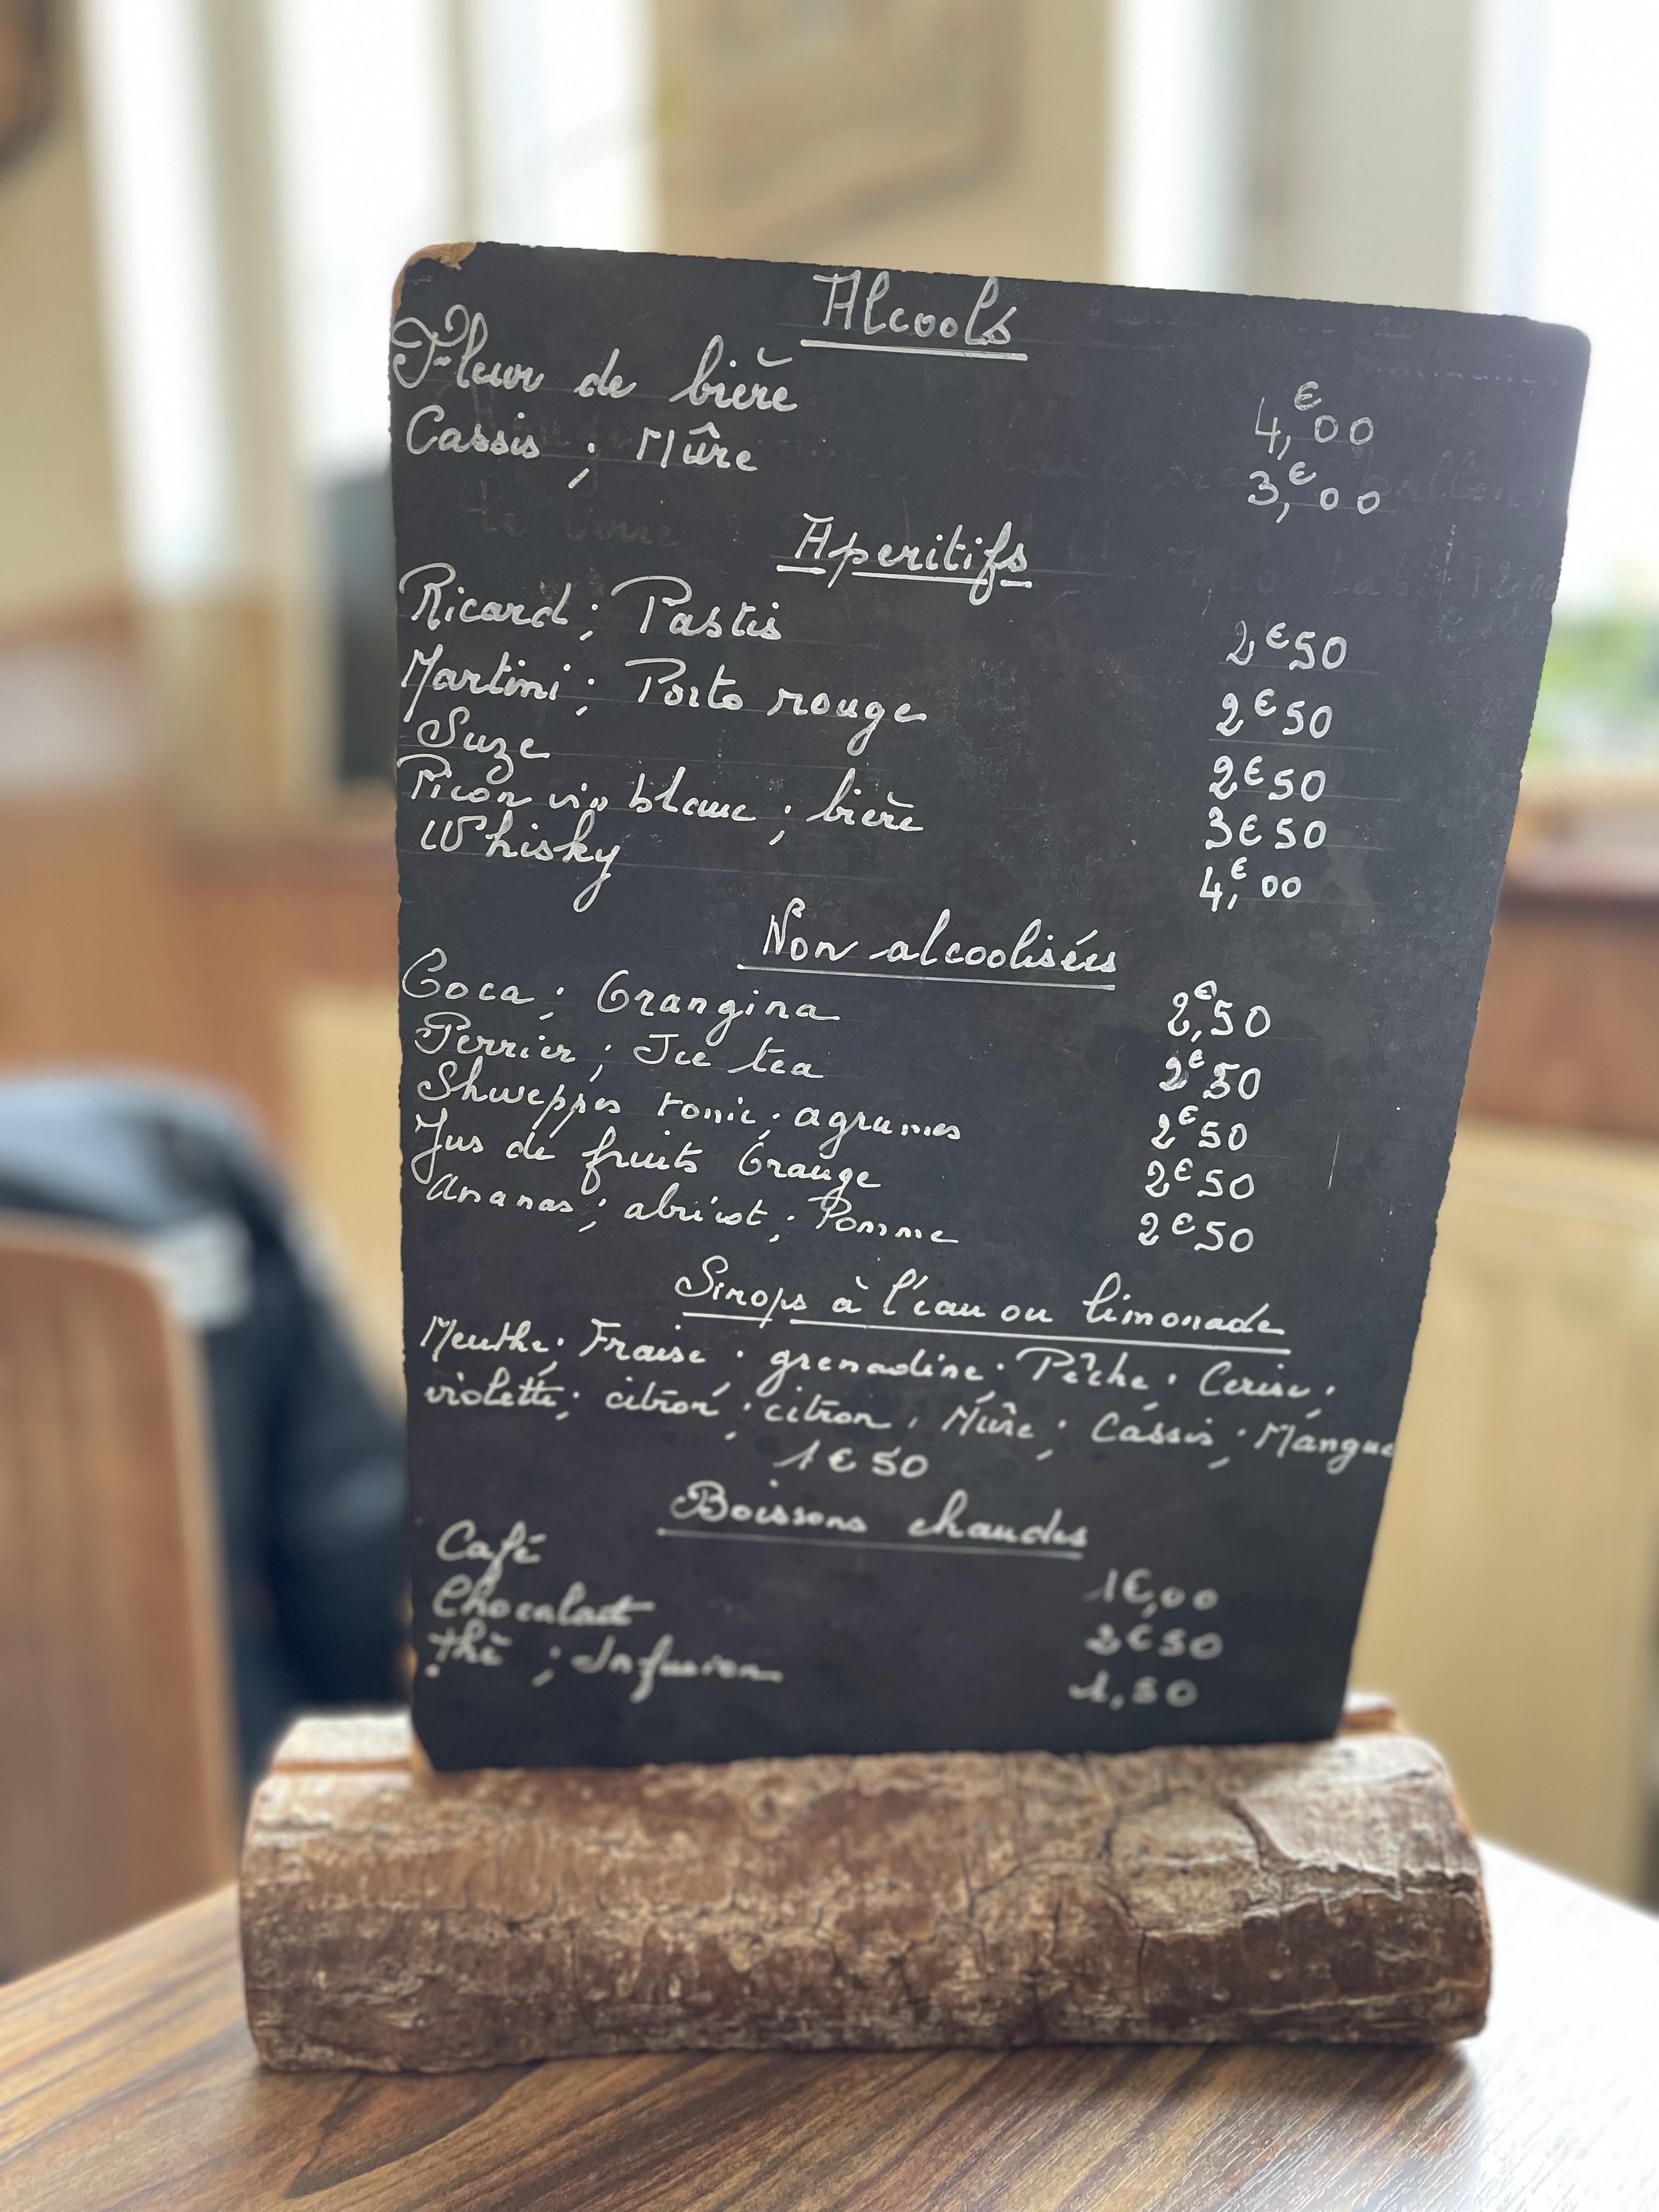 Alcools
Fleur de bière 4,€00
Cassis ; Mûre 3,€00
Aperitifs
Ricard ; Pastis 2€50
Martini ; Porto rouge 2€50
Suze 2€50
Picon vin blanc ; bière 3€50
Whisky 4,€00
Non alcoolisées
Coca ; Orangina 2,€50
Perrier ; Ice tea 2€50
Shweppes tonic ; agrumes 2€50
Jus de fruits Orange 2€50
Ananas ; abricot ; Pomme 2€50
Sirops à l'eau ou limonade
Menthe ; Fraise ; grenadine ; Pêche ; Cerise ;
violette ; citron ; citron , Mûre ; Cassis ; Mangue
1€50
Boissons chaudes
Café 1€,00
Chocolat 2€50
Thé ; Infusion 1,50